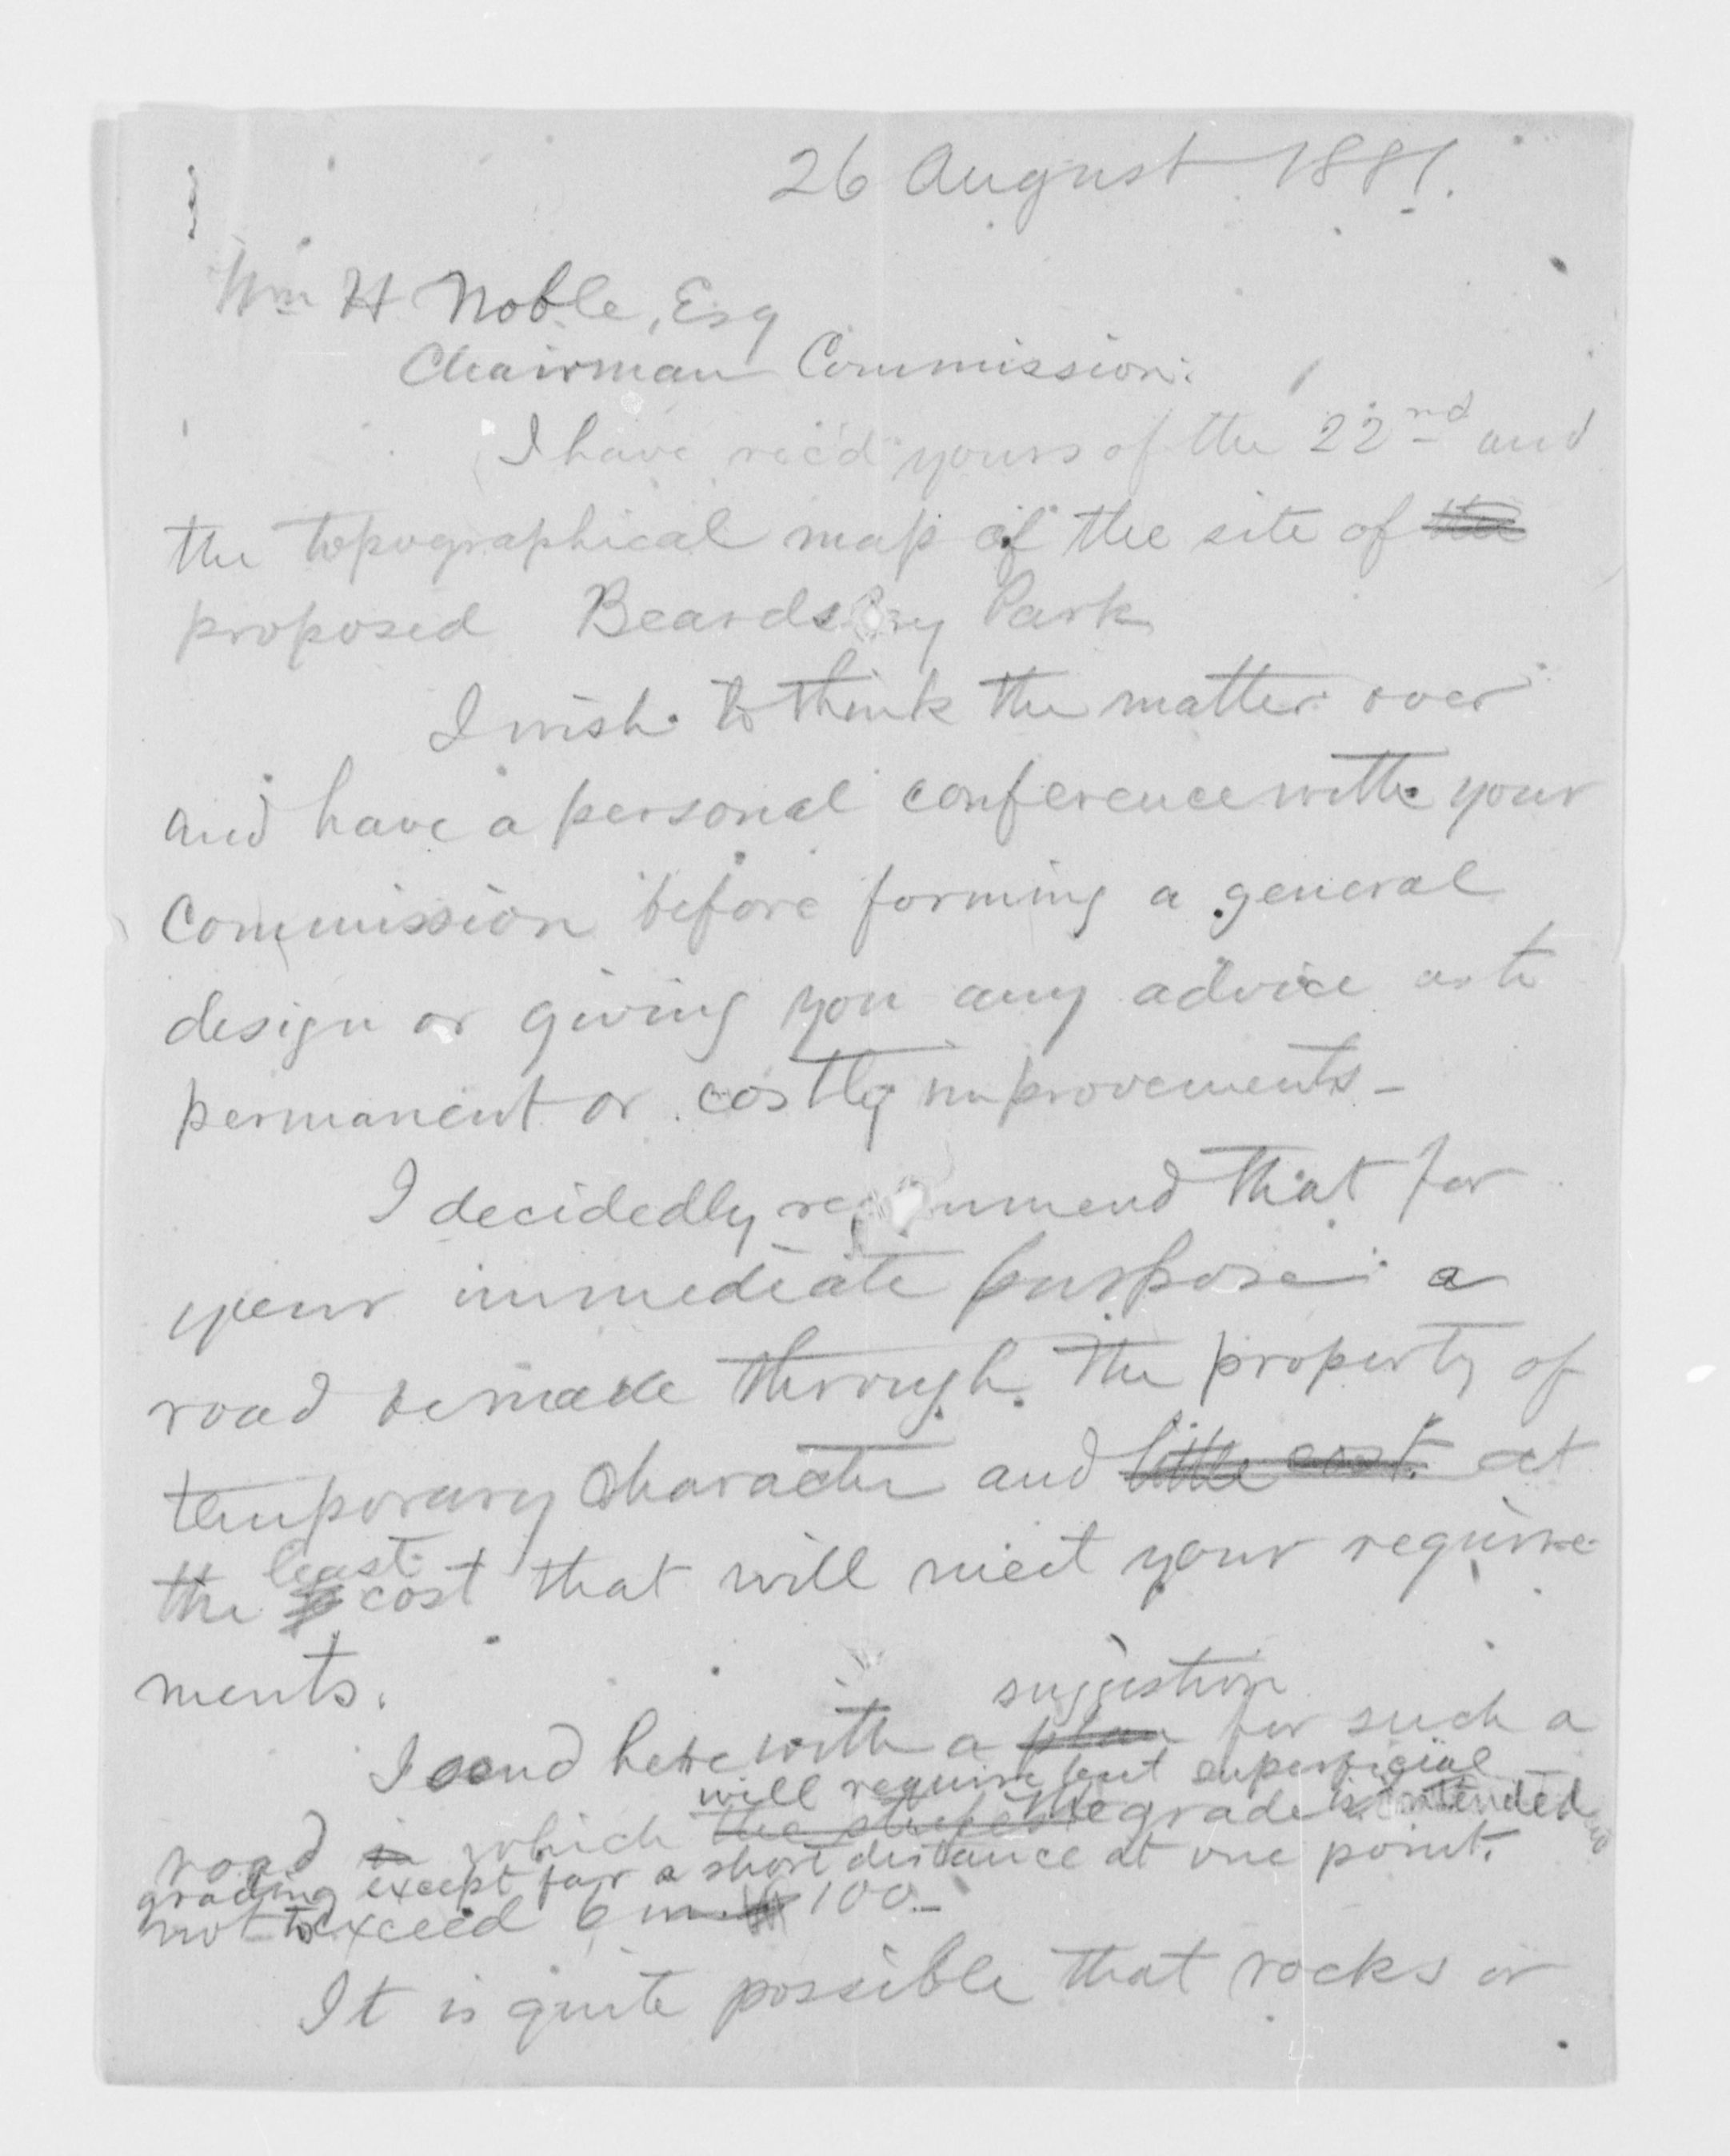 26 August 1881.
Wm H Noble, Esq
Chairman Commission.
I have rec'd yours of the 22nd and
the topographical map of the site of the
proposed Beardsley Park
I wish to think the matter over
and have a personal conference with your
Commission before forming a general
design or giving you any advice as to
permanent or costly improvements -
I decidedly recommend that for
your immediate purpose a
road be made through the property of
temporary character and little cost at
least
the cost that will meet your require-
ments.
suggestion
I send herewith a plan for such a
will require but superficial
road in which the steepest grade is intended
grading except for a short distance at one point.
not to exceed 6 in 100.-
It is quite possible that rocks or